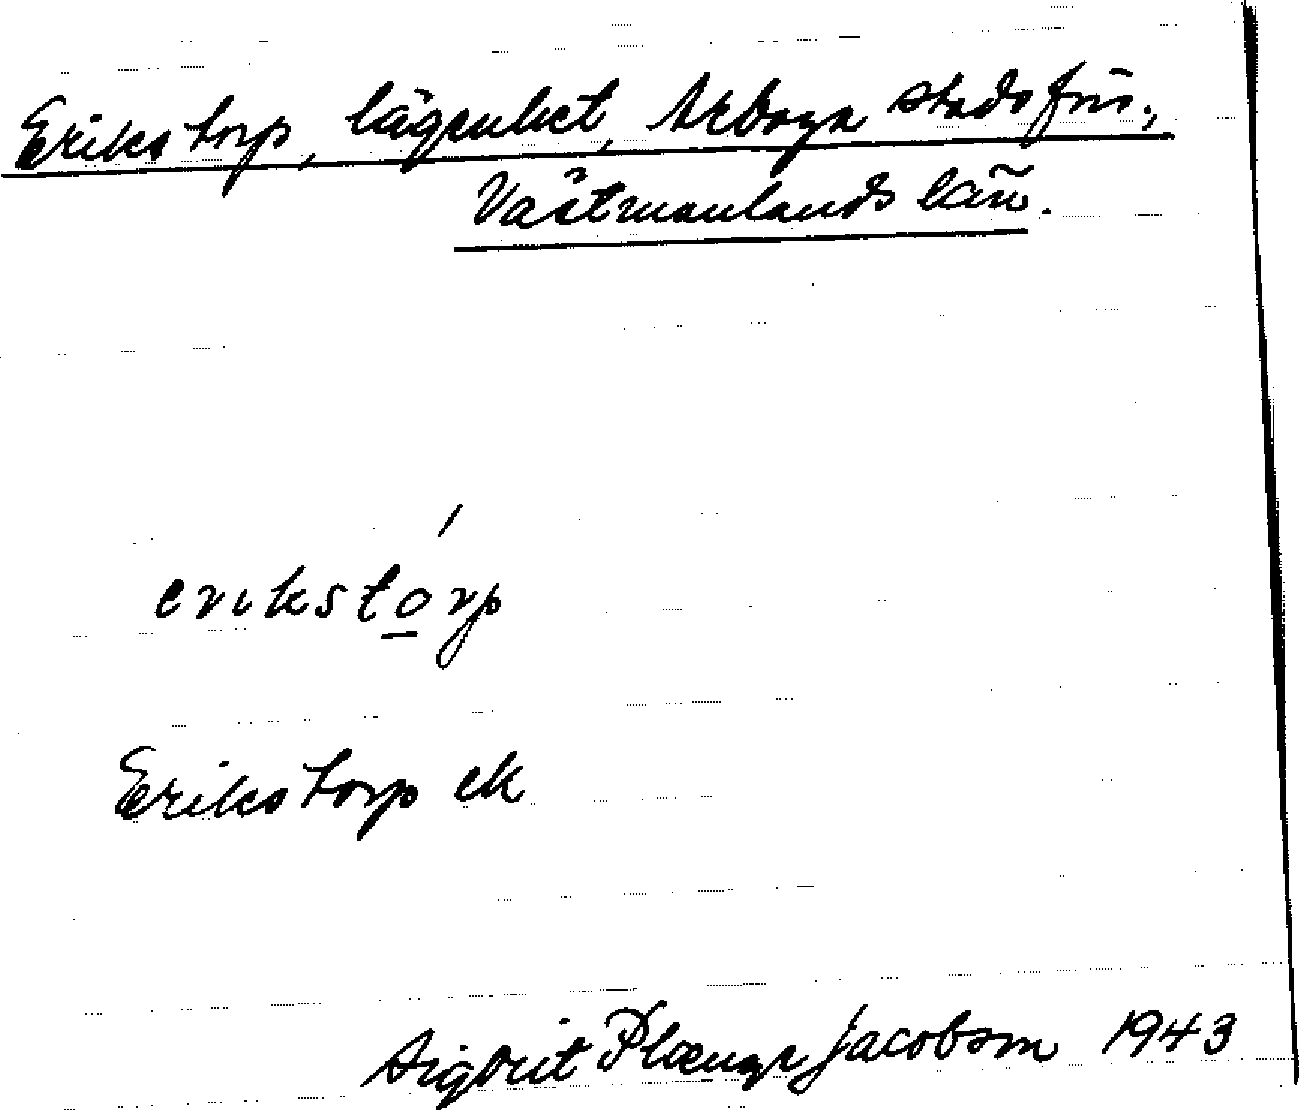 Erikstorp, lägenhet, Arboga stadsförs.,
Västmanlands län.
erikstorp
Erikstorp ek
Sigbrit Plænge Jacobson 1943